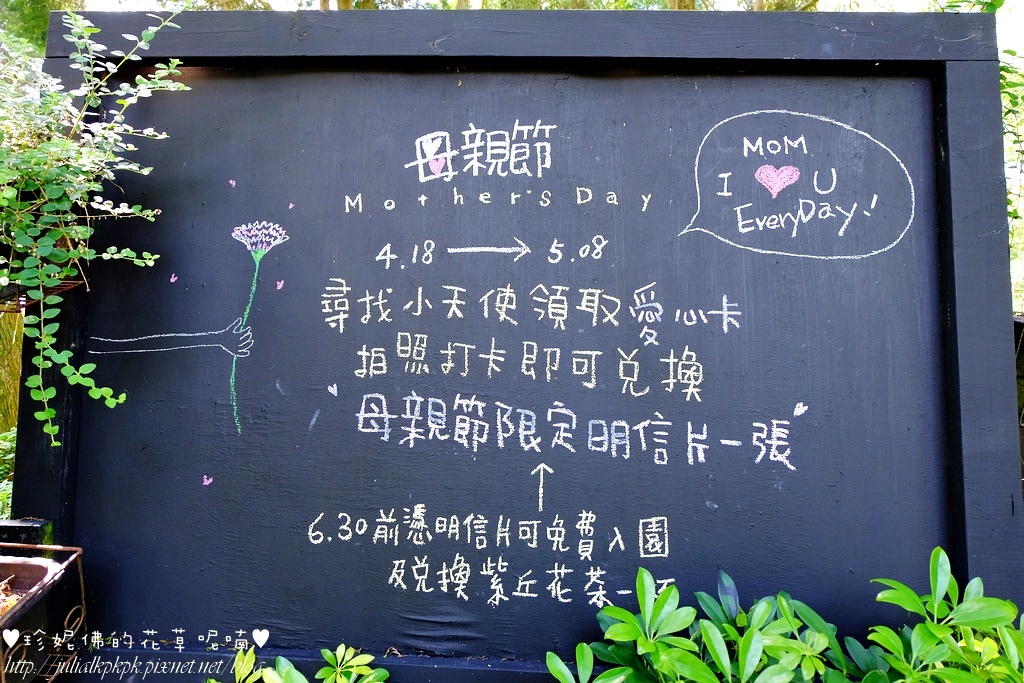 母親節
Mother's Day
MOM
I ♥ U
EveryDay!
4.18 → 5.08
尋找小天使領取愛心卡
拍照打卡即可兌換
母親節限定明信片一張
6.30前憑明信片可免費入園
及兌換紫丘花茶一
♥珍妮佛的花草呢喃♥
http://julialkpkpk.pixnet.net/blog